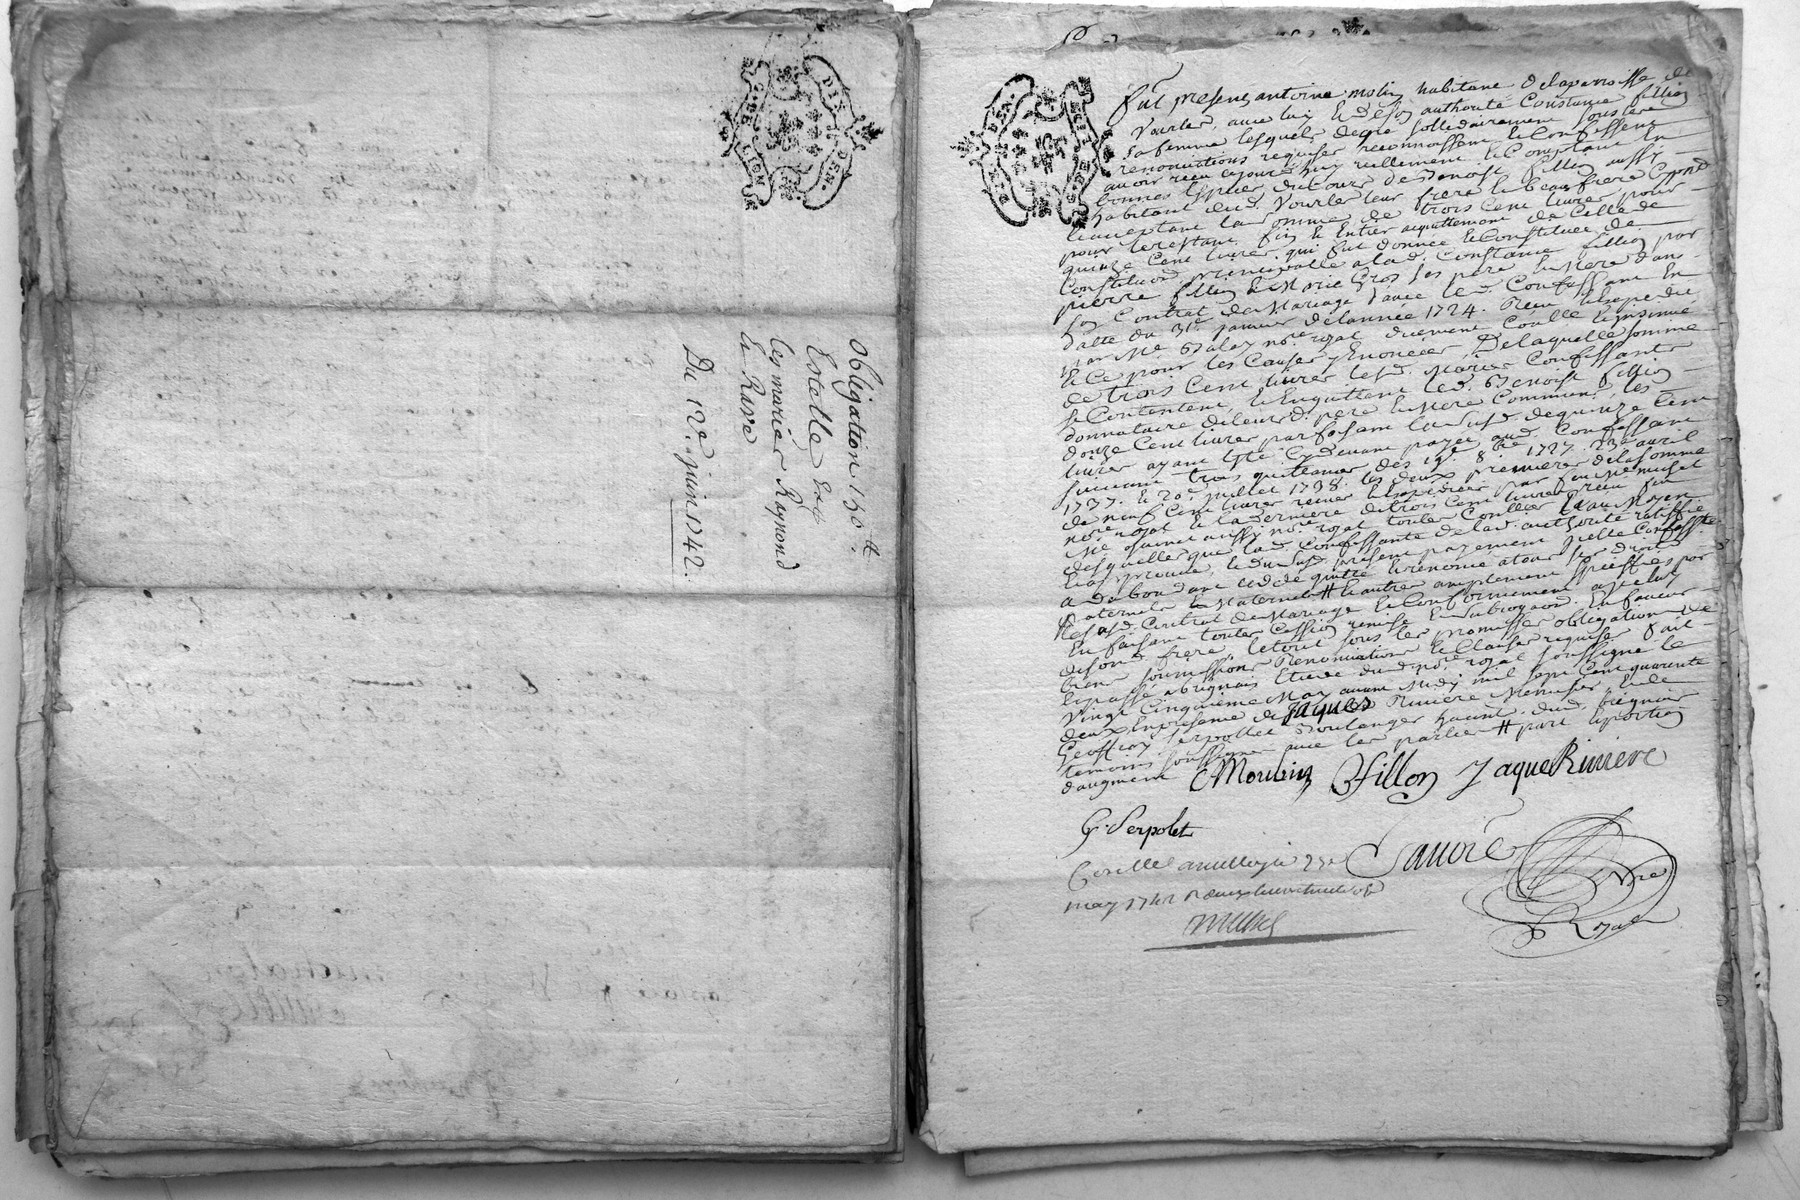 G. DE LION
DIX DEN.
Obligation 150 tt
Estelle En
les mariés Raymond
le Rave
Du 12e. juin 1742.
DIX DEN.
G. DE LION
fut presens antoine molin habitant de la parroisse de
Vourles, avec luy et de son authorité Constance fillion
sa femme lesquels de gré sollidairement sous les
renonciations requises reconnoissent et Confessent
avoir receu ce jourd'huy reellement et Comptant en
bonnes Espèces du cours de Benoist fillion aussy
habitant dud. Vourles leur frere et beau frere
l'acceptant la somme de trois Cent livres pour
pour le restant fin et Entier acquittement de Celle de
quinze Cent livres qui fut donnée et Constituée de
Constitution principalle à lad. Constance fillion par
pierre fillion et Marie Gros ses pere et Mere dans
son Contrat de Mariage avec led. Confessant En
datte du 31e. janvier de l'année 1724. Receu et expedié
par Me Balay nore royal duement Conllé et insinué
et Ce pour les Causes y Enoncées, De laquelle somme
de trois Cent livres lesd. Mariés Confessants
se Contentent et En quittent led. Benoist fillion
donnataire de leurd. pere et Mere Commun, les
douze Cent livres parfaisant lad. de quinze Cent
livres ayant Esté Cydevant payée aud. Confessant
suivant trois quittances des 19e. 8bre 1727. 23e avril
1737. et 20e. juillet 1738. les deux premieres de la somme
de neuf Cent livres receues et expediées par feu Me michel
nore royal et la derniere de trois Cent livres receu
Me aussi nore royal toutes Conllées au Moyen
desquelles que lad. Confessante de lad. authorité ratiffie
et approuve, et du present payement icelle Confessante
a Dabondant cedé quitté et renoncé à tous ses droits
paternels et Maternels # et autres amplement speciffiés par
led. Contrat de Mariage et Conformement à iceluy
En faisant toutes Cession remise et subrogaon En faveur
de sond. frere le tout sous les promesses obligation de
biens soumissions Renonciations et Clauses requises fait
et passé à brignais Etude dud. nore royal soussigné le
Vingt Cinquieme May avant Midy mil sept Cent quarente
deux En presence de jaques Riviere Menusier et de
Geoffroy Serpollet Boulanger habitants dud. brignais
temoins soussignés avec les parties # part et portion
d'augment
Moulin Bfillon JaqueRiviere
G. Serpolet
Gavoit
Nre
Royal
may 1742
michel